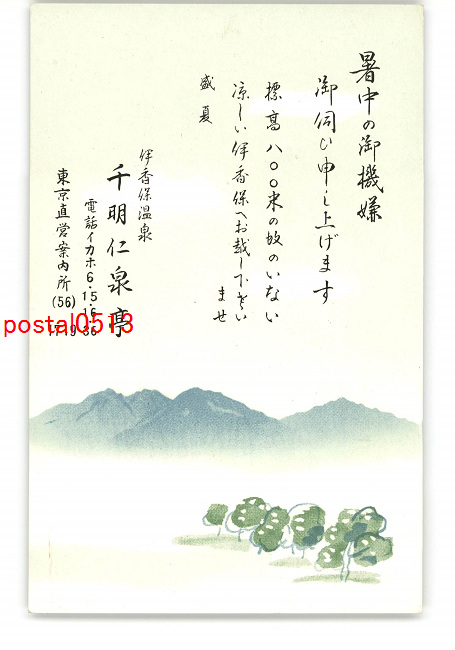 暑中の御機嫌
御伺ひ申し上げます
標高八〇〇米の蚊のいない
涼しい伊香保へお越し下さい
ませ
盛夏
伊香保温泉
千明仁泉亭
電話イカホ6・15・16・36
東京直営案内所
(56)
postal0513